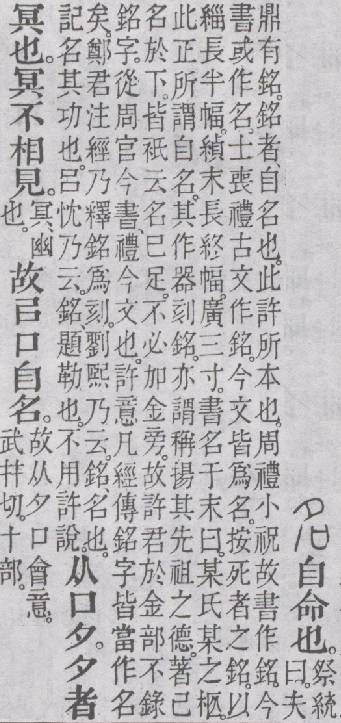 自命也。祭統曰。夫
鼎有銘。銘者自名也。此許所本也。周禮小祝故書作銘。今
書或作名。士喪禮古文作銘。今文皆爲名。按死者之銘。以
緇長半幅。赬末長終幅。廣三寸。書名于末曰。某氏某之柩。
此正所謂自名。其作器刻銘。亦謂稱揚其先祖之德。著己
名於下。皆祇云名已足。不必加金旁。故許君於金部不錄
銘字。從周官今書。禮今文也。許意凡經傳銘字皆當作名
矣。鄭君注經乃釋銘爲刻。劉熙乃云。銘、名也。
記名其功也。吕忱乃云。銘、題勒也。不用許說。从口夕。夕者
冥也。冥不相見。冥、幽也。故㠯口自名。故从夕口會意。武幷切。十一部。